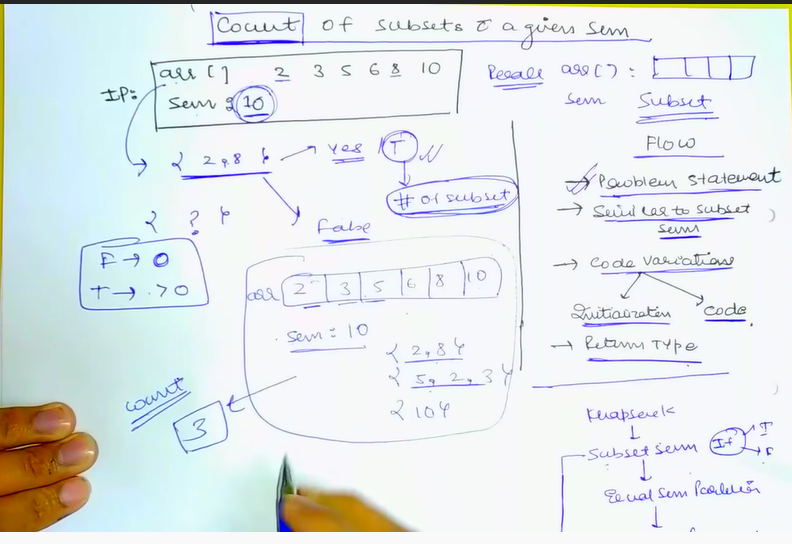 Count of subsets c a given sum
arr [] 2 3 5 6 8 10
I/P:
sum : 10
{ 2, 8 } → Yes / T
# of subset
False
{ ? }
F → 0
T → > 0
arr 2 3 5 6 8 10
sum = 10
{ 2, 8 }
{ 5, 2, 3 }
{ 10 }
count
3
Recall arr [] :
sum Subset
Flow
→ Problem statement
→ Similar to subset sum
→ Code variations
Initialization code
→ Return Type
Knapsack
↓
Subset sum If T
F
↓
Equal Sum Partition
↓